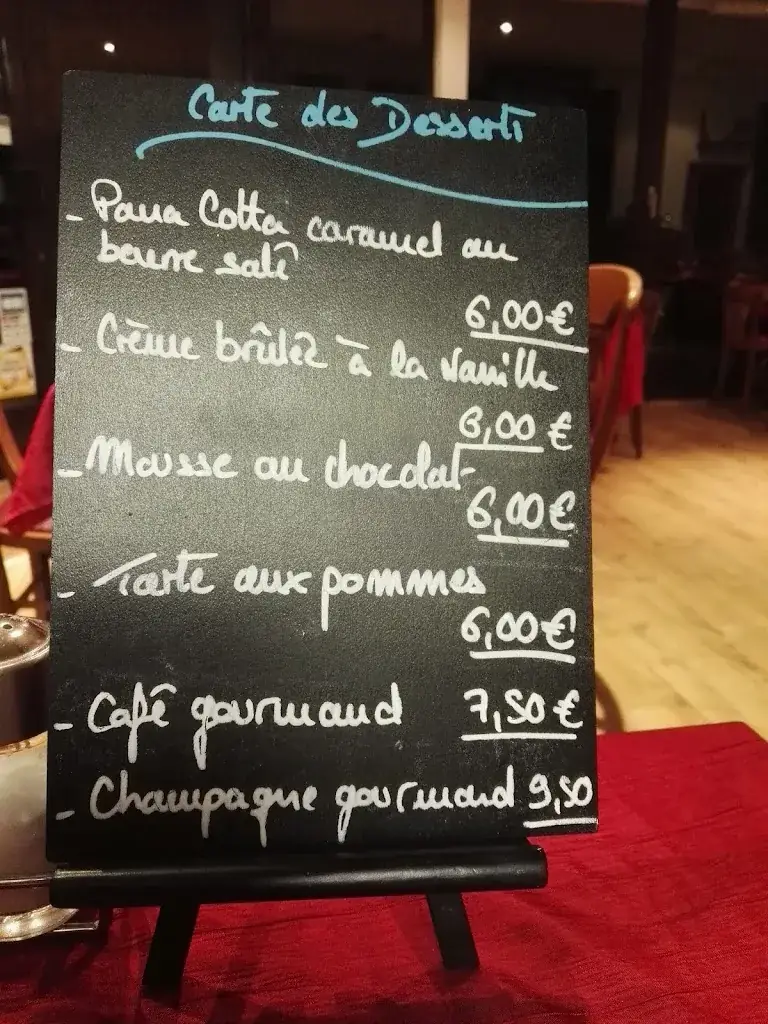 Carte des Desserts
- Pana Cotta caramel au
beurre salé
6,00 €
- Crème brûlée à la vanille
6,00 €
- Mousse au chocolat
6,00 €
- Tarte aux pommes
6,00 €
- Café gourmand 7,50 €
- Champagne gourmand 9,50